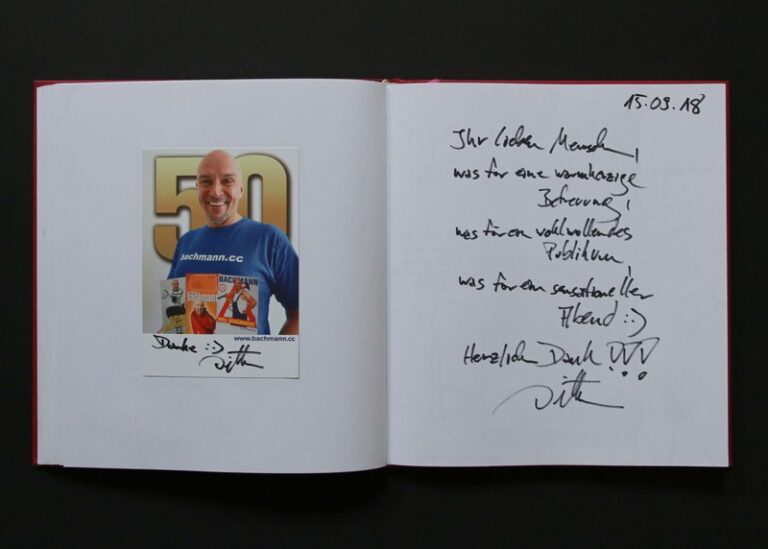 50
bachmann.cc
BACHMANN
www.bachmann.cc
Danke :-)
15.09.18
Ihr lieben Menschen,
was für eine warmherzige
Betreuung,
was für ein wohlwollendes
Publikum,
was für ein sensationeller
Abend :-)
Herzlichen Dank !!!